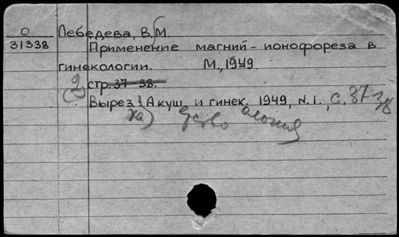 О
31338
Лебедева, В.М.
Применение магний-ионофореза в
гинекологии. М., 1949.
(2) стр. 37-38.
Вырез! Акуш. и гинек. 1949, N.1., с. 37-38